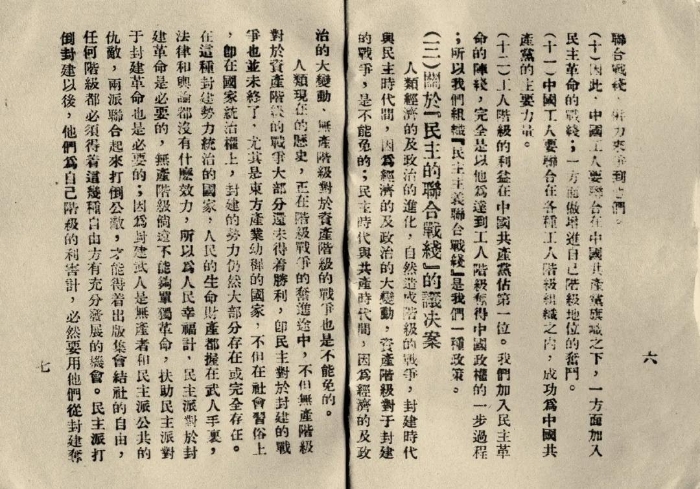 聯合戰綫,
(十)因此,中國工人要聯合在中國共產黨旗幟之下,一方面加入
民主革命的戰綫;一方面做增進自己階級地位的奮鬥。
(十一)中國工人要聯合在各種工人階級組織之內,成功為中國共
產黨的主要力量。
(十二)工人階級的利益在中國共產黨佔第一位。我們加入民主革
命的陣綫,完全是以他為達到工人階級奪得中國政權的一步過程
;所以我們組織『民主主義聯合戰綫』是我們一種政策。
(三)關於『民主的聯合戰綫』的議決案
人類經濟的及政治的進化,自然造成階級的戰爭,封建時代
與民主時代間,因為經濟的及政治的大變動,資產階級對于封建
的戰爭,是不能免的;民主時代與共產時代間,因為經濟的及政
六
治的大變動,無產階級對於資產階級的戰爭也是不能免的。
人類現在的歷史,正在階級戰爭的奮進途中,不但無產階級
對於資產階級的戰爭大部分還未得着勝利,卽民主對於封建的戰
爭也並未終了,尤其是東方產業幼稚的國家,不但在社會習俗上
,卽在國家統治權上,封建的勢力仍然大部分存在或完全存在。
在這種封建勢力統治的國家,人民的生命財產都握在武人手裏,
法律和輿論都沒有什麼效力,所以為人民幸福計,民主派對於封
建革命是必要的,無產階級倘還不能夠單獨革命,扶助民主派對
于封建革命也是必要的;因為封建武人是無產者和民主派公共的
仇敵,兩派聯合起來打倒公敵,才能得着出版集會結社的自由,
任何階級都必須得着這幾種自由方有充分發展的機會。民主派打
倒封建以後,他們為自己階級的利害計,必然要用他們從封建奪
七